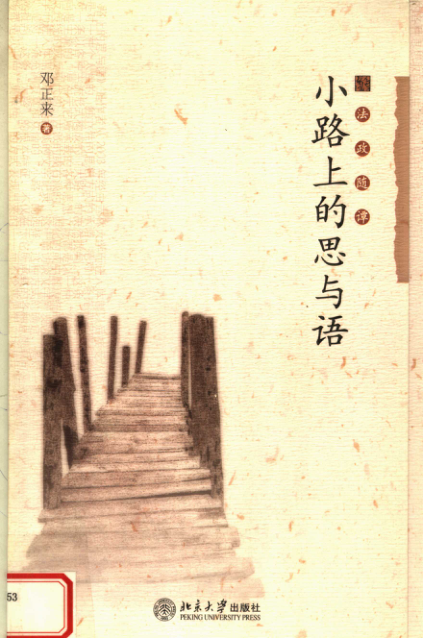 法政随谭
小路上的思与语
邓正来 著
53
北京大学出版社
PEKING UNIVERSITY PRESS